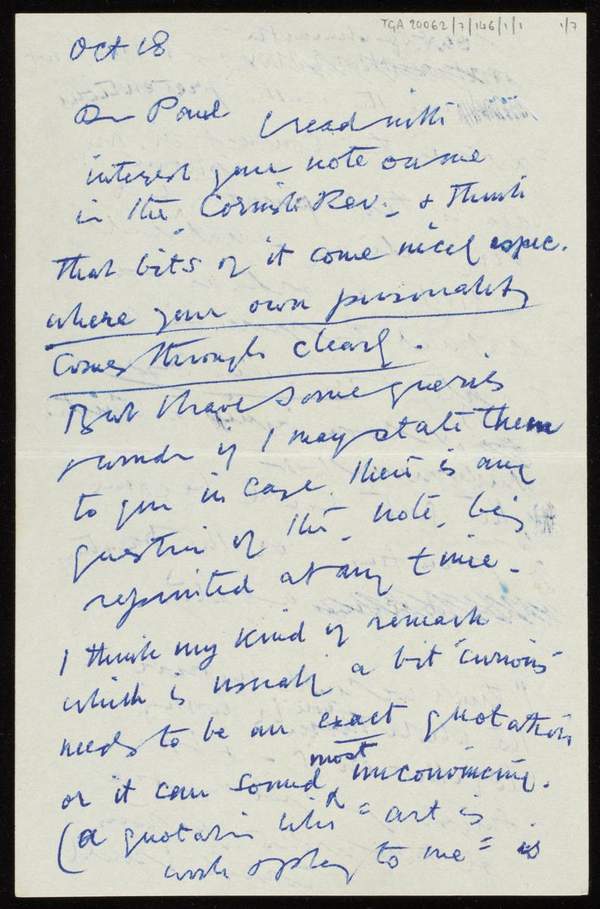 TGA 20062/7/146/1/1 1/7
Oct 18
Dear Powell I read with
interest your note on me
in the Cornish Rev. & think
that bits of it come nicely espec.
where your own personality
comes through clearly.
But I have some queries
I wonder if I may state them
to you in case there is any
question of the note being
reprinted at any time.
I think my kind of remark
which is usually a bit 'curious'
needs to be an exact quotation
or it can sound most unconvincing.
(a quotation like "art is
work & play to me" is